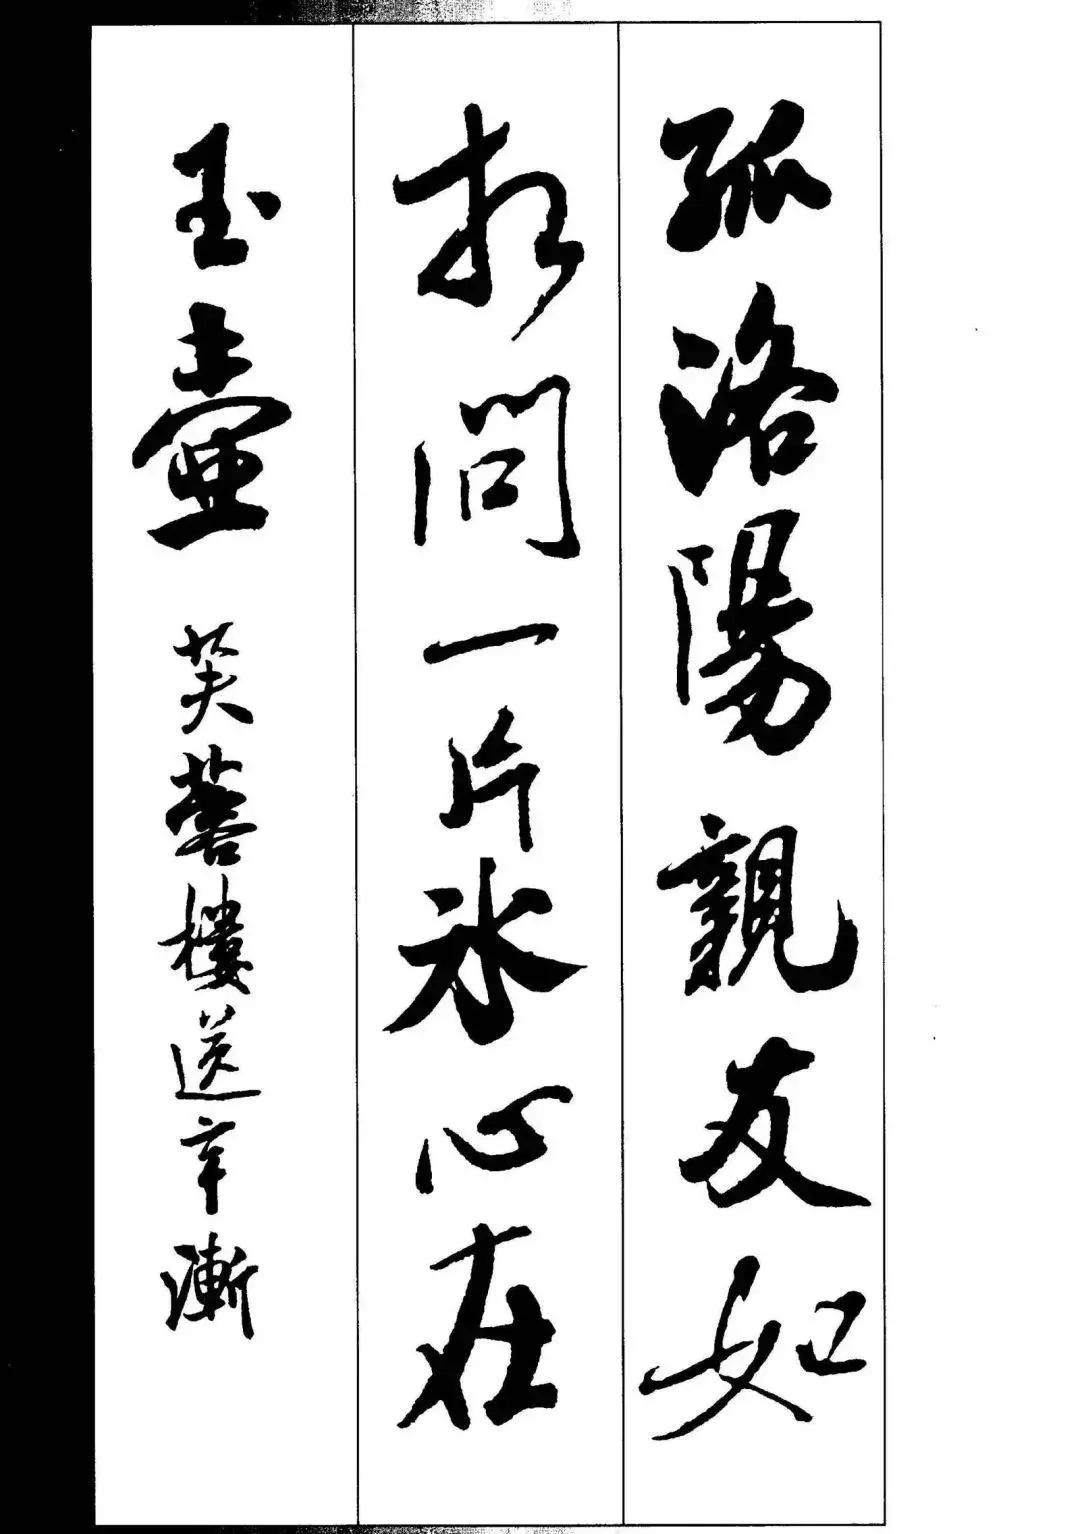 孤洛陽親友如
相問一片冰心在
玉壺 芙蓉樓送辛漸